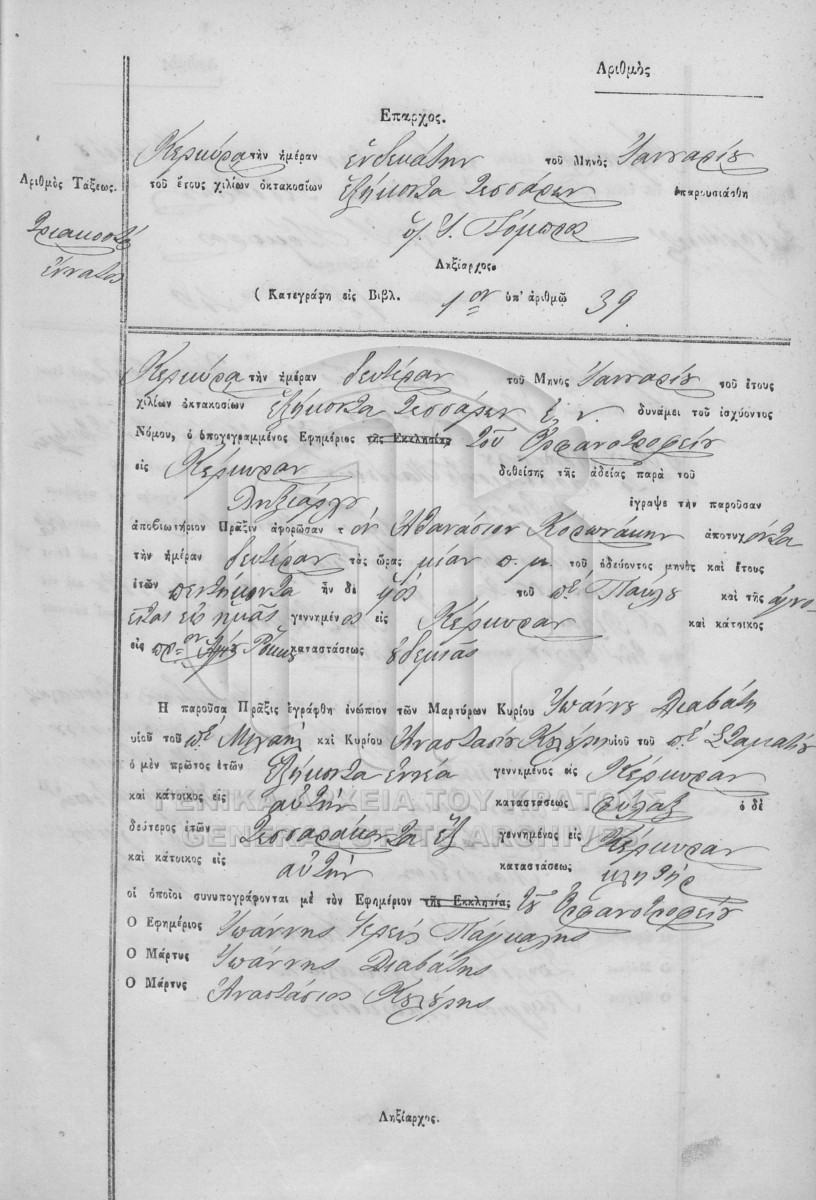 Αριθμὸς
Επαρχος.
Κερκύρα τὴν ἡμέραν ἑνδεκάτην τοῦ Μηνὸς Ἰανναρίου
Αριθμὸς Τάξεως.
τοῦ ἔτους χιλίων ὀκτακοσίων ἑξήκοντα τεσσάρων επαρουσιάσθη
Τριακοστὴ
ἐννάτη
Ληξίαρχος.
( Κατεγράφη εἰς Βιβλ. 1ον ὑπ' ἀριθμῷ 39
Κερκύρα τὴν ἡμέραν δευτέραν τοῦ Μηνος Ἰανναρίου τοῦ ἔτους
χιλίων ὀκτακοσίων ἑξήκοντα τεσσάρων ἑ. ν. δυνάμει τοῦ ἰσχύοντος
Νόμου, ὁ ὑπογεγραμμένος Εφημέριος τῆς Εκκλησίας τοῦ Ὀρφανοτροφείου
εἰς Κέρκυραν δοθείσης τῆς ἀδείας παρὰ τοῦ
Ληξιάρχου έγραψε τὴν παροῦσαν
ἀποβιωτήριον Πρᾶξιν ἀφορῶσαν τὸν Ἀθανάσιον Κορωνάκην ἀποτυχόντα
τὴν ἡμέραν δευτέραν τὰς ὥρας μίαν π. μ. τοῦ ὁδεύοντος μηνὸς καὶ ἔτους
ἐτῶν πεντήκοντα ἦν δὲ υἱὸς τοῦ πὲ Παύλου καὶ τῆς ἀγνο-
εῖται εἰς ἡμᾶς γεννημένος εἰς Κέρκυραν καὶ κάτοικος
εἰς καταστάσεως οὐδεμιᾶς
Η παροῦσα Πρᾶξις ἐγράφθη ἐνώπιον τῶν Μαρτύρων Κυρίου Ἰωάννου Διαβάτη
υἱοῦ τοῦ πὲ Μιχαὴλ καὶ Κυρίου Ἀναστασίου υἱοῦ τοῦ πὲ Σταματίου
ὁ μὲν πρῶτος ἐτῶν ἑξήκοντα ἐννέα γεννημένος εἰς Κέρκυραν
καὶ κάτοικος εἰς αὐτὴν καταστάσεως φύλαξ ὁ δὲ
δεύτερος ἐτῶν τεσσαράκοντα ἓξ γεννημένος εἰς Κέρκυραν
καὶ κάτοικος εἰς αὐτὴν καταστάσεως κλητήρ
οἱ ὁποῖοι συνυπογράφονται μὲ τὸν Εφημέριον τῆς Εκκλησίας τοῦ Ὀρφανοτροφείου
Ο Εφημέριος Ἰωάννης Ἱερεὺς Πάγκαλης
Ο Μάρτυς Ἰωάννης Διαβάτης
Ο Μάρτυς Ἀναστάσιος
Ληξίαρχος.
ΓΕΝΙΚΑ ΑΡΧΕΙΑ ΤΟΥ ΚΡΑΤΟΥΣ
GENERAL STATE ARCHIVES